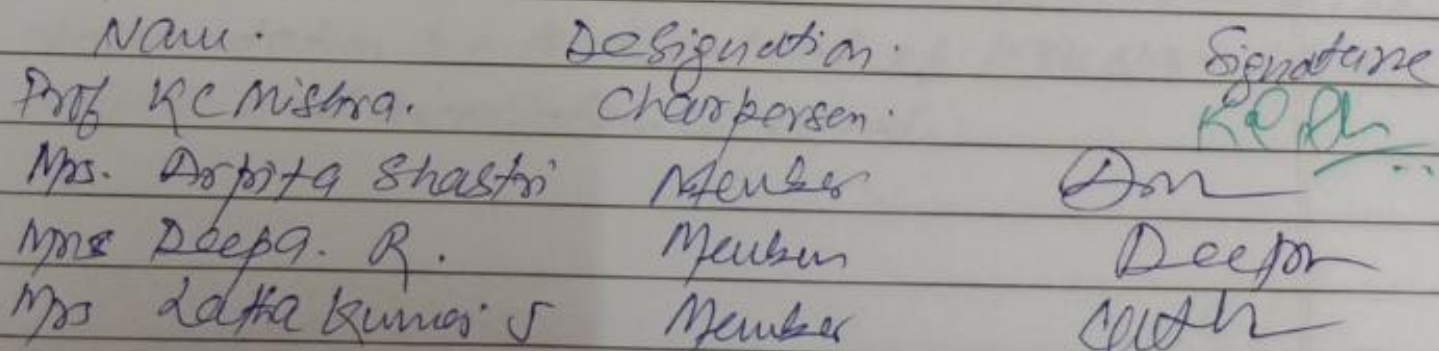 Name. Designation. Signature
Prof KC Mishra. Chairperson.
Mrs. Arpita Shastri Member
Mrs Deepa. R. Member Deepa
Mrs Latha Kumari J Member